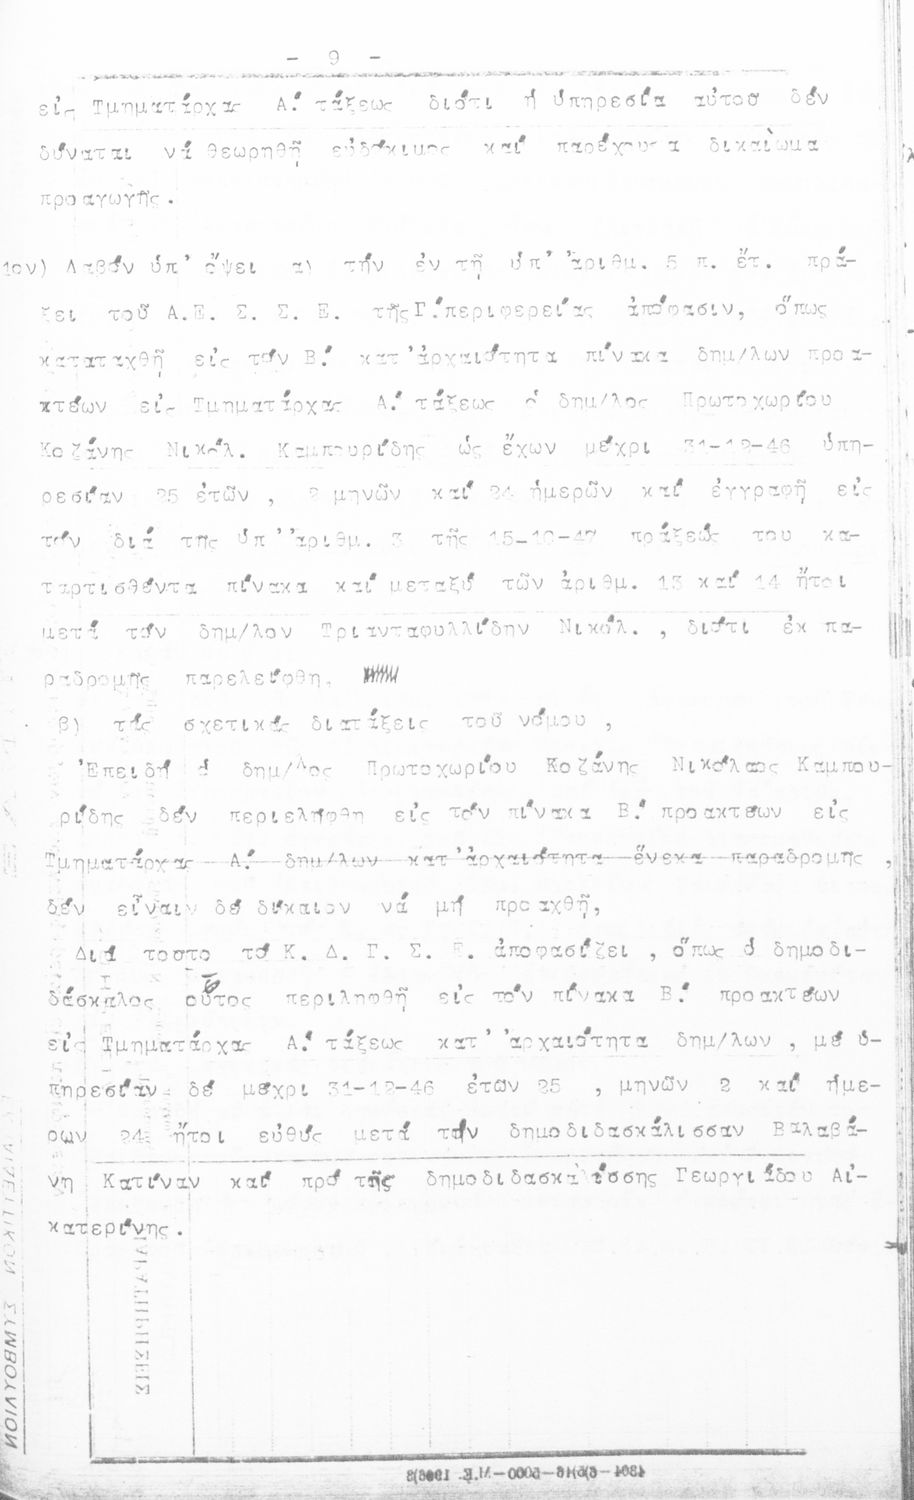 - 9 -
εἰς Τμηματάρχας Α.΄ τάξεως διότι ἡ ὑπηρεσία αὐτοῦ δέν
δύναται νά θεωρηθῇ εὐδόκιμος καί παρέχουσα δικαίωμα
προαγωγῆς.
1ον) Λαβόν ὑπ' ὄψει α) τήν ἐν τῇ ὑπ' ἀριθμ. 5 π. ἔτ. πρά-
ξει τοῦ Α.Ε. Σ. Σ. Ε. τῆς Γ.΄περιφερείας ἀπόφασιν, ὅπως
καταταχθῇ εἰς τόν Β.΄ κατ'ἀρχαιότητα πίνακα δημ/λων προα-
κτέων εἰς Τμηματάρχας Α.΄ τάξεως ὁ δημ/λος Πρωτοχωρίου
Κοζάνης Νικόλ. Καμπουρίδης ὡς ἔχων μέχρι 31-12-46 ὑπη-
ρεσίαν 25 ἐτῶν , 2 μηνῶν καί 24 ἡμερῶν καί ἐγγραφῇ εἰς
τόν διά της ὑπ' ἀριθμ. 3 τῆς 15-10-47 πράξεώς του κα-
ταρτισθέντα πίνακα καί μεταξύ τῶν ἀριθμ. 13 καί 14 ἤτοι
μετά τόν δημ/λον Τριανταφυλλίδην Νικόλ. , διότι ἐκ πα-
ραδρομῆς παρελείφθη.
β) τάς σχετικάς διατάξεις τοῦ νόμου ,
Ἐπειδή ὁ δημ/λος Πρωτοχωρίου Κοζάνης Νικόλαος Καμπου-
ρίδης δέν περιελήφθη εἰς τόν πίνακα Β.΄ προακτέων εἰς
Τμηματάρχας Α.΄ δημ/λων κατ'ἀρχαιότητα ἕνεκα παραδρομῆς ,
δέν εἶναιν δέ δίκαιον νά μή προαχθῇ,
Διά τουτο τό Κ. Δ. Γ. Σ. Ε. ἀποφασίζει , ὅπως ὁ δημοδι-
δάσκαλος οὗτος περιληφθῇ εἰς τόν πίνακα Β.΄ προακτέων
εἰς Τμηματάρχας Α.΄ τάξεως κατ' ἀρχαιότητα δημ/λων , μέ ὑ-
πηρεσίαν δέ μέχρι 31-12-46 ἐτῶν 25 , μηνῶν 2 καί ἡμε-
ρων 24 ἤτοι εὐθύς μετά τήν δημοδιδασκάλισσαν Βαλαβά-
νη Κατίναν καί πρό τῆς δημοδιδασκαλίσσης Γεωργιάδου Αἰ-
κατερίνης.
ΠΑΡΑΤΗΡΗΣΕΙΣ
ΣΥΜΒΟΥΛΙΟΝ